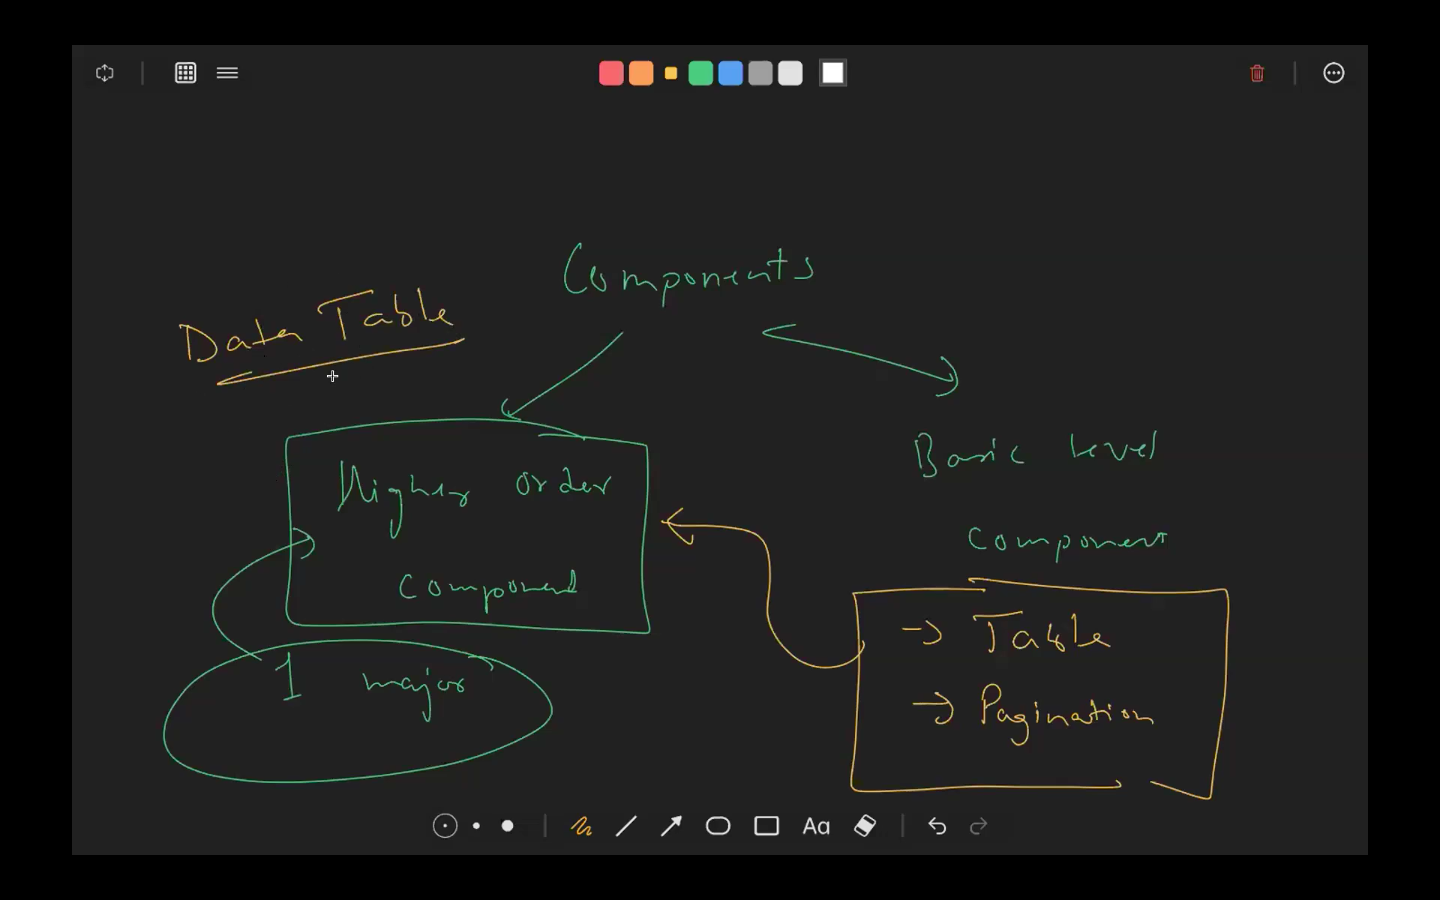 Components
Data Table
Higher order
component
1 major
Basic level
component
→ Table
→ Pagination
Aa